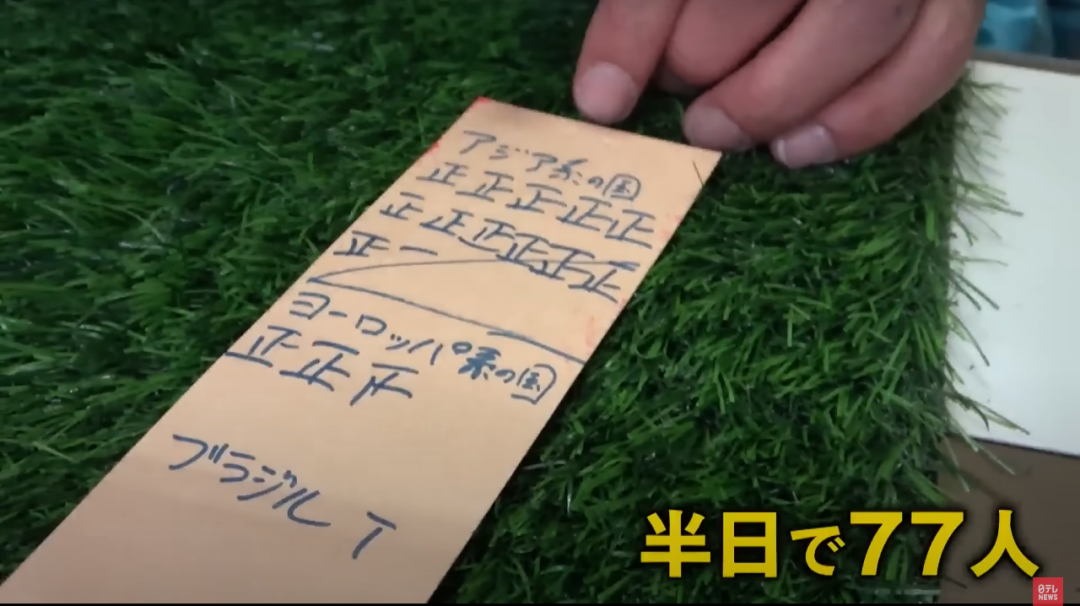 アジア系の国
正正正正正
正正正正正正
正一
ヨーロッパ系の国
正正下
ブラジル T
半日で77人
日テレ
NEWS